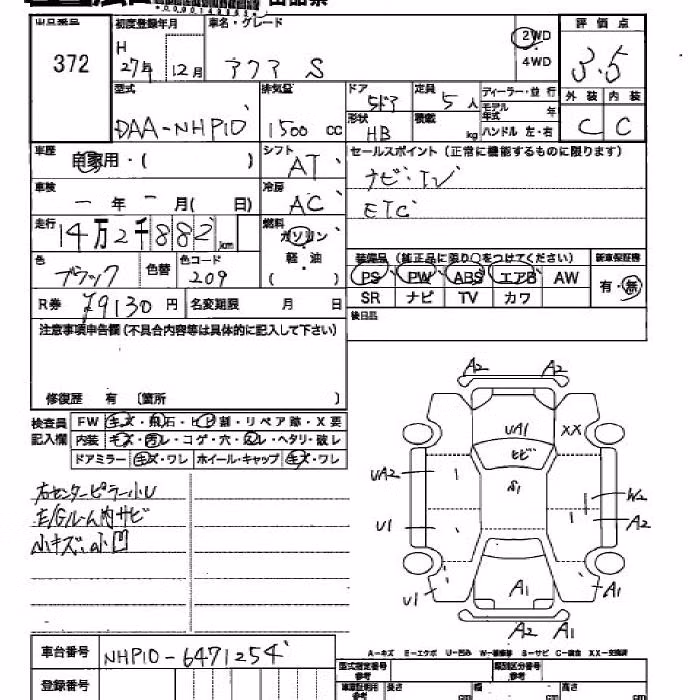 出品番号 初度登録年月 車名・グレード 評価点
372 H 27年 12月 アクア S 2WD 3.5
4WD
外装 内装
型式 排気量 ドア 定員 ディーラー・並行
DAA-NHP10 1500 cc 5ドア 5人 モデル年式 年 C C
形状 HB 積載 kg ハンドル 左・右
車歴 自家用・( ) シフト AT セールスポイント (正常に機能するものに限ります)
ナビ・TV
車検 ー年 ー月( 日) 冷房 AC ETC
走行 14万2千882 km 燃料 ガソリン
軽・油
( )
装備品 (純正品に限り○をつけてください) 新車保証書
色 ブラック 色替 色コード 209 PS PW ABS エアB AW 有・無
R券 ¥9130 円 名変期限 月 日 SR ナビ TV カワ
注意事項申告欄 (不具合内容等は具体的に記入して下さい) 後日品
修復歴 有 〔箇所 〕
検査員 FW キズ・飛石・ヒビ割・リペア跡・X要
記入欄 内装 キズ・汚レ・コゲ・穴・ ・ヘタリ・破レ
ドアミラー キズ・ワレ ホイール・キャップ キズ・ワレ
右センターピラー小U
E/Gルーム内サビ
小キズ・小凹
A2 A2
UA1 XX
ヒビ
UA2 S1
W2
U1 A2
U1 A1 A1
A2 A1
A-キズ E-エクボ U-凹ミ W-補修跡 S-サビ C-腐食 XX-交換済
車台番号 NHP10-6471254
型式指定番号 類別区分番号
登録番号 長さ cm 幅 cm 高さ cm